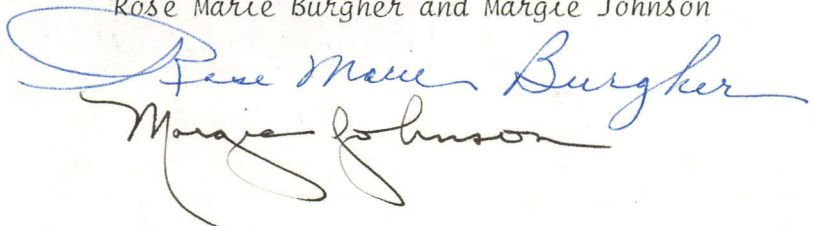 Rose Marie Burgher and Margie Johnson
Rose Marie Burgher
Margie Johnson